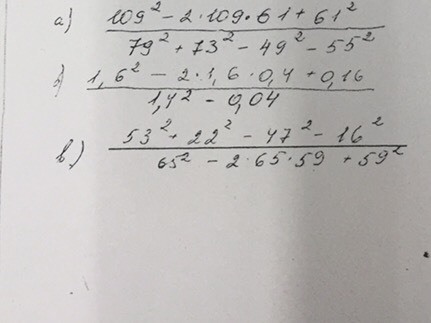 а) 109² - 2·109·61 + 61²
79² + 73² - 49² - 55²
б) 1,6² - 2·1,6·0,4 + 0,16
1,4² - 0,04
в) 53² + 22² - 47² - 16²
65² - 2·65·59 + 59²